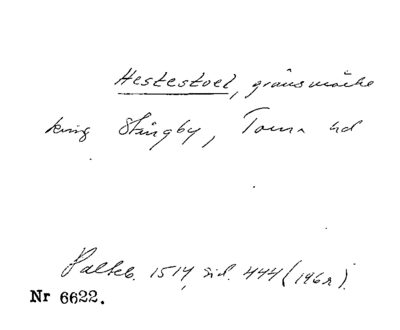 Hestestoel, gränsmärke
kring Stångby, Torna hd
Palteb. 1514, sid. 444 (1962).
Nr 6622.